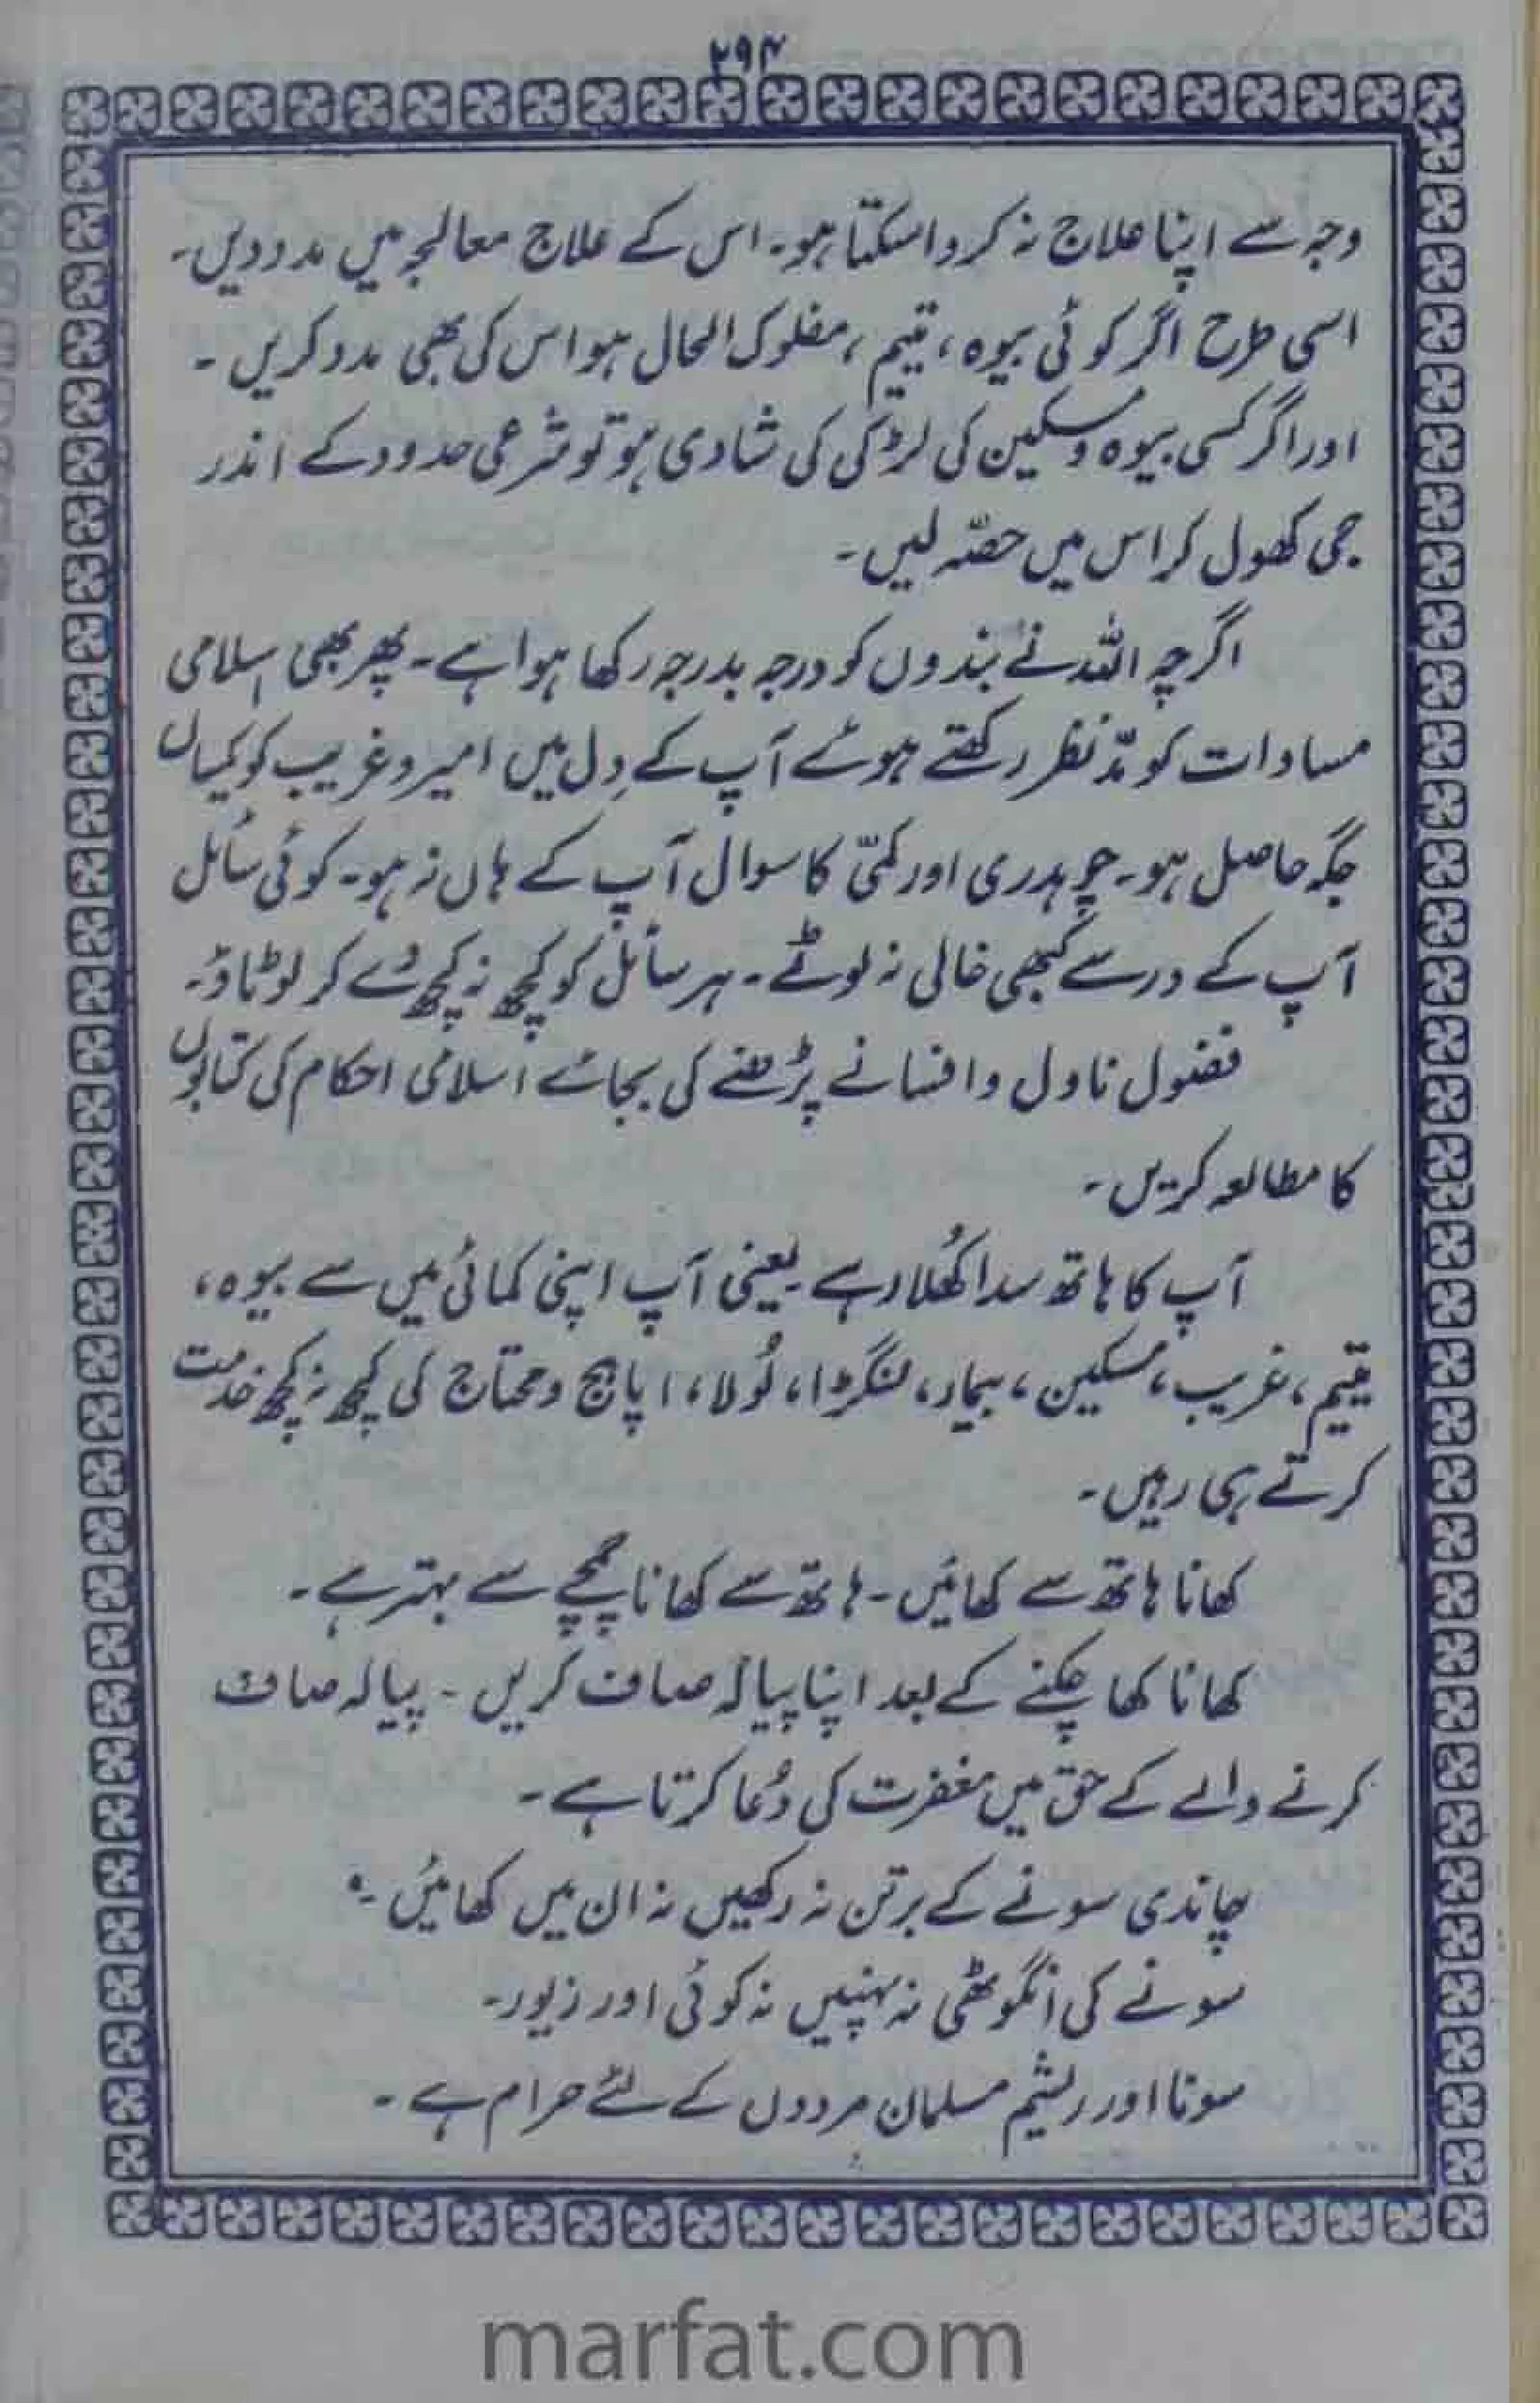 ۲۹۴
وجہ سے اپنا علاج نہ کروا سکتا ہو۔ اس کے علاج معالجہ میں مدد دیں۔
اسی طرح اگر کوئی بیوہ، یتیم، مفلوک الحال ہو اس کی بھی مدد کریں۔
اور اگر کسی بیوہ و مسکین کی لڑکی کی شادی ہو تو شرعی حدود کے اندر
جی کھول کر اس میں حصّہ لیں۔
اگرچہ اللہ نے بندوں کو درجہ بدرجہ رکھا ہوا ہے۔ پھر بھی اسلامی
مساوات کو مدّنظر رکھتے ہوئے آپ کے دِل میں امیر و غریب کو یکساں
جگہ حاصل ہو۔ چوہدری اور کمّی کا سوال آپ کے ہاں نہ ہو۔ کوئی سائل
آپ کے در سے کبھی خالی نہ لوٹے۔ ہر سائل کو کچھ نہ کچھ دے کر لوٹاؤ۔
فضول ناول و افسانے پڑھنے کی بجائے اسلامی احکام کی کتابوں
کا مطالعہ کریں۔
آپ کا ہاتھ سدا کھُلا رہے یعنی آپ اپنی کمائی میں سے بیوہ،
یتیم، غریب، مسکین، بیمار، لنگڑا، لُولا، اپاہج و محتاج کی کچھ نہ کچھ خدمت
کرتے ہی رہیں۔
کھانا ہاتھ سے کھائیں۔ ہاتھ سے کھانا چمچے سے بہتر ہے۔
کھانا کھا چکنے کے بعد اپنا پیالہ صاف کریں۔ پیالہ صاف
کرنے والے کے حق میں مغفرت کی دُعا کرتا ہے۔
چاندی سونے کے برتن نہ رکھیں نہ ان میں کھائیں۔
سونے کی انگوٹھی نہ پہنیں نہ کوئی اور زیور۔
سونا اور ریشم مسلمان مردوں کے لئے حرام ہے۔
marfat.com